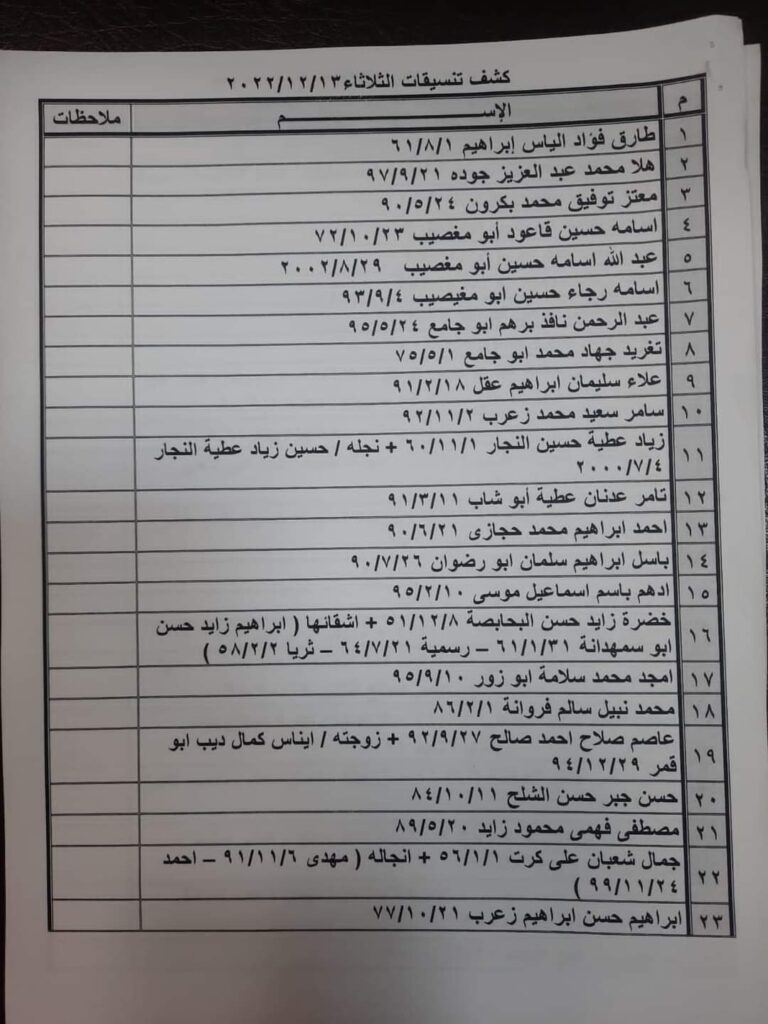 كشف تنسيقات الثلاثاء ٢٠٢٢/١٢/١٣
م الإســـــــم ملاحظات
١ طارق فؤاد الياس إبراهيم ٦١/٨/١
٢ هلا محمد عبد العزيز جوده ٩٧/٩/٢١
٣ معتز توفيق محمد بكرون ٩٠/٥/٢٤
٤ اسامه حسين قاعود أبو مغصيب ٧٢/١٠/٢٣
٥ عبد الله اسامه حسين أبو مغصيب ٢٠٠٢/٨/٢٩
٦ اسامه رجاء حسين ابو مغيصيب ٩٣/٩/٤
٧ عبد الرحمن نافذ برهم ابو جامع ٩٥/٥/٢٤
٨ تغريد جهاد محمد ابو جامع ٧٥/٥/١
٩ علاء سليمان ابراهيم عقل ٩١/٢/١٨
١٠ سامر سعيد محمد زعرب ٩٢/١١/٢
١١ زياد عطية حسين النجار ٦٠/١١/١ + نجله / حسين زياد عطية النجار
٢٠٠٠/٧/٤
١٢ تامر عدنان عطية أبو شاب ٩١/٣/١١
١٣ احمد ابراهيم محمد حجازى ٩٠/٦/٢١
١٤ باسل ابراهيم سلمان ابو رضوان ٩٠/٧/٢٦
١٥ ادهم باسم اسماعيل موسى ٩٥/٢/١٠
١٦ خضرة زايد حسن البحابصة ٥١/١٢/٨ + اشقائها ( ابراهيم زايد حسن
ابو سمهدانة ٦١/١/٣١ – رسمية ٦٤/٧/٢١ – ثريا ٥٨/٢/٢ )
١٧ امجد محمد سلامة ابو زور ٩٥/٩/١٠
١٨ محمد نبيل سالم فروانة ٨٦/٢/١
١٩ عاصم صلاح احمد صالح ٩٢/٩/٢٧ + زوجته / ايناس كمال ديب ابو
قمر ٩٤/١٢/٢٩
٢٠ حسن جبر حسن الشلح ٨٤/١٠/١١
٢١ مصطفى فهمى محمود زايد ٨٩/٥/٢٠
٢٢ جمال شعبان على كرت ٥٦/١/١ + انجاله ( مهدى ٩١/١١/٦ – احمد
٩٩/١١/٢٤ )
٢٣ ابراهيم حسن ابراهيم زعرب ٧٧/١٠/٢١